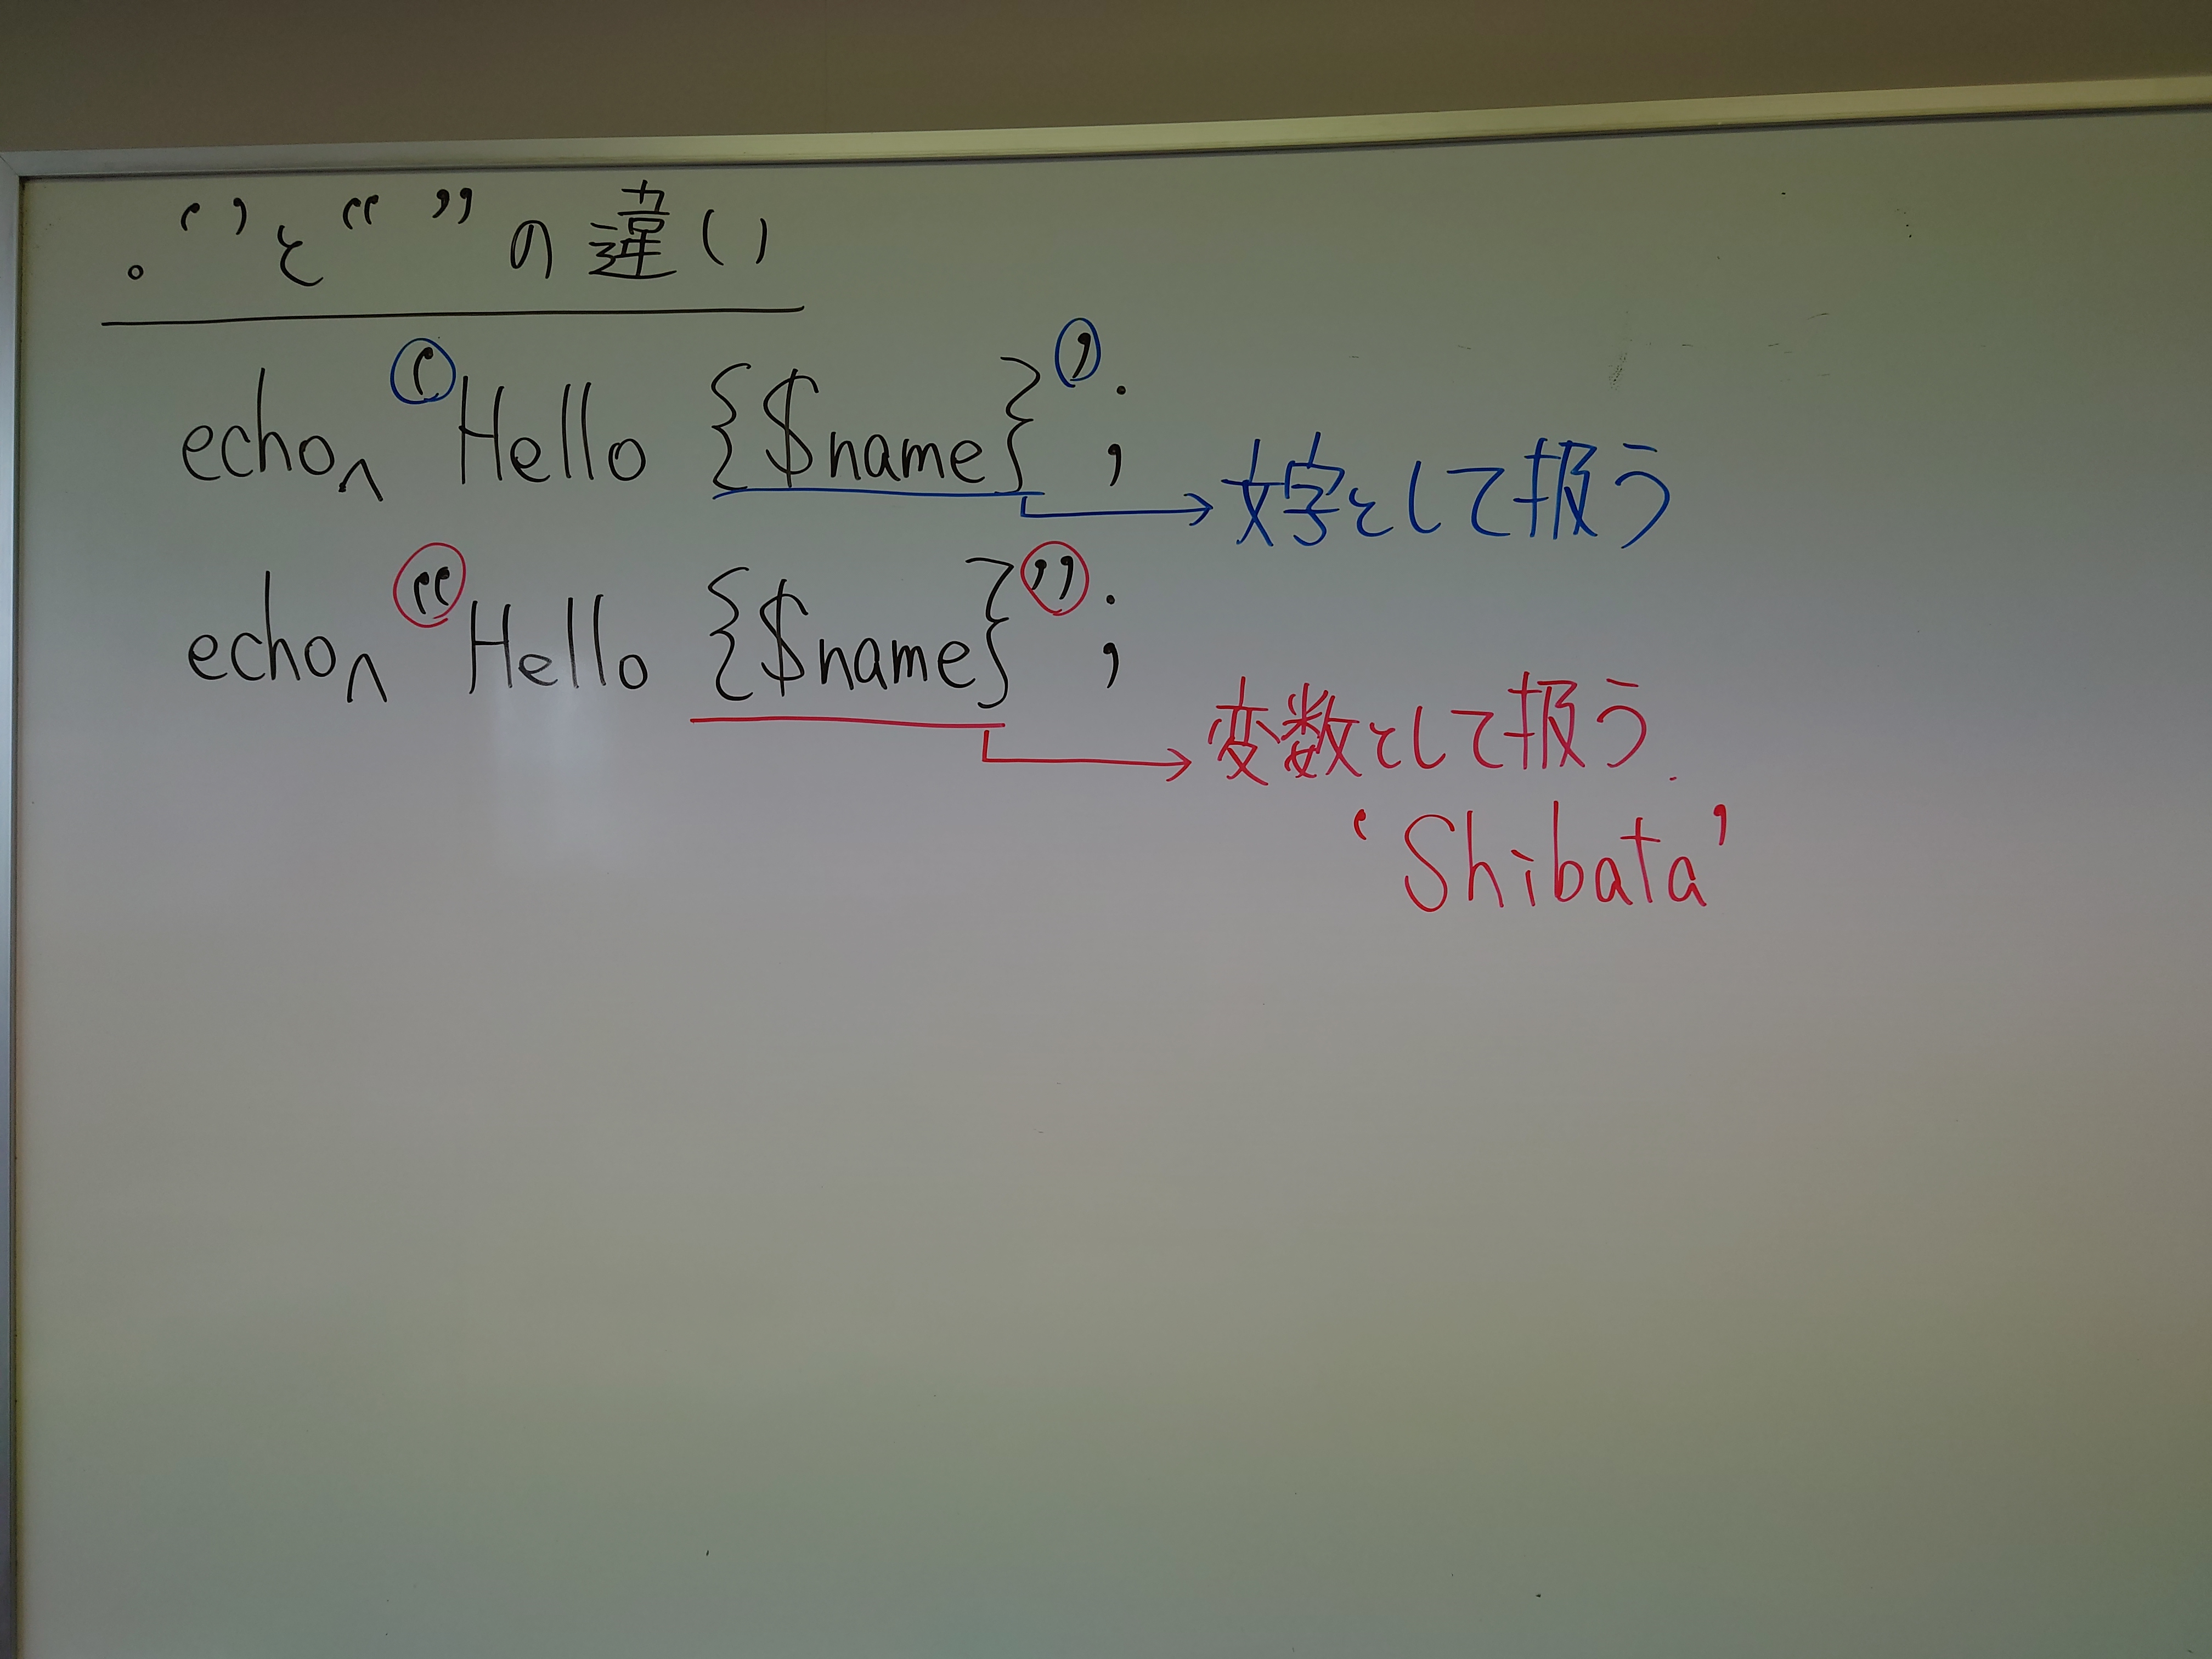 。‘ ’と“ ”の違い
echo ‘Hello {$name}’;
文字として扱う
echo “Hello {$name}”;
変数として扱う
‘Shibata’